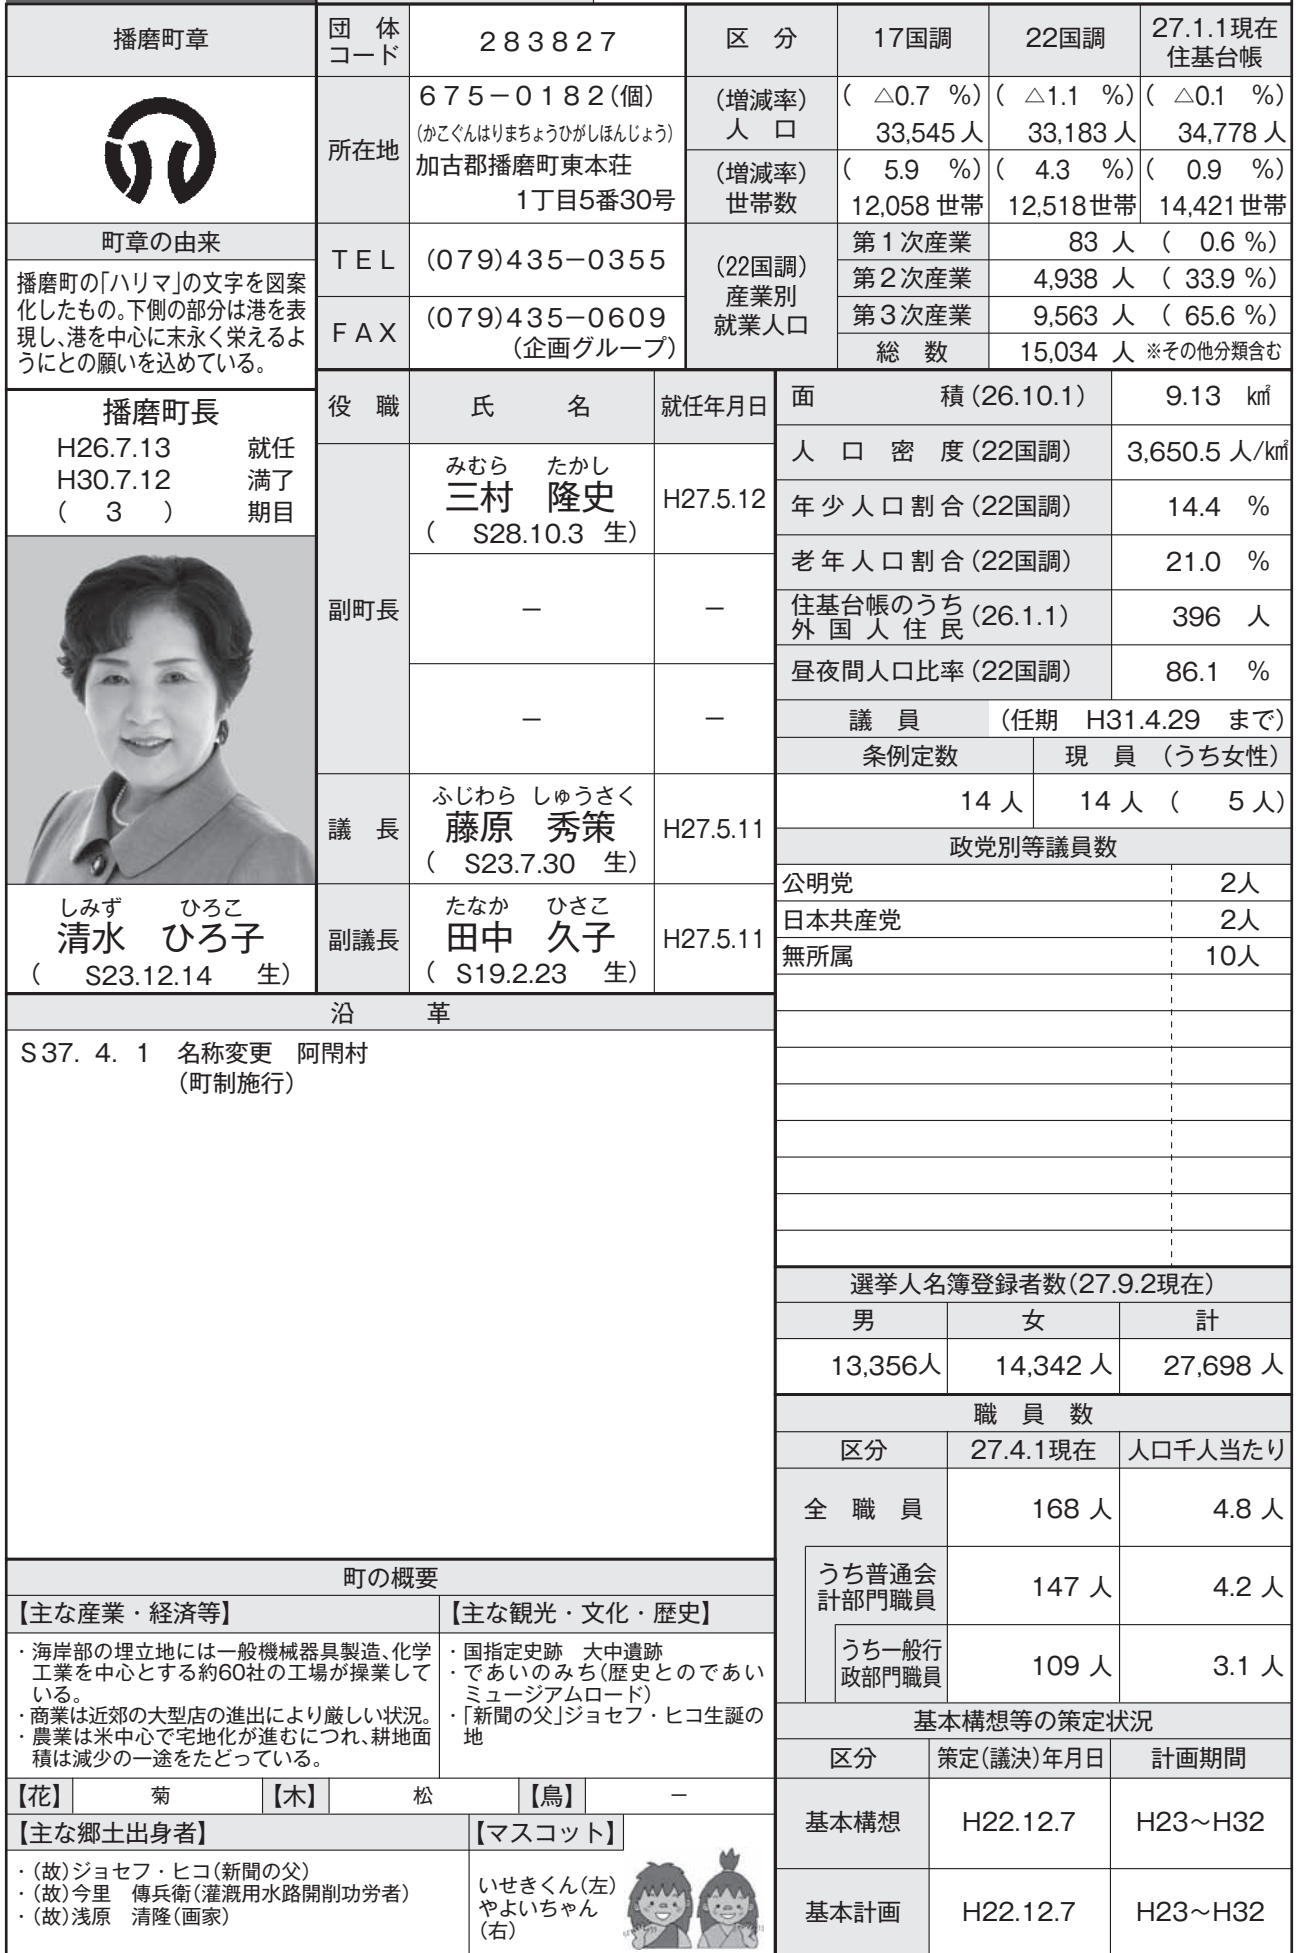 播磨町章
町章の由来
播磨町の「ハリマ」の文字を図案
化したもの。下側の部分は港を表
現し、港を中心に末永く栄えるよ
うにとの願いを込めている。
団 体
コード
283827
所在地
675－0182(個)
(かこぐんはりまちょうひがしほんじょう)
加古郡播磨町東本荘
1丁目5番30号
TEL
(079)435－0355
FAX
(079)435－0609
(企画グループ)
区 分 17国調 22国調 27.1.1現在
住基台帳
(増減率) ( △0.7 %) ( △1.1 %) ( △0.1 %)
人 口 33,545人 33,183人 34,778人
(増減率) ( 5.9 %) ( 4.3 %) ( 0.9 %)
世帯数 12,058世帯 12,518世帯 14,421世帯
(22国調)
産業別
就業人口
第1次産業 83 人 ( 0.6 %)
第2次産業 4,938 人 ( 33.9 %)
第3次産業 9,563 人 ( 65.6 %)
総 数 15,034 人 ※その他分類含む
播磨町長
H26.7.13 就任
H30.7.12 満了
( 3 ) 期目
しみず ひろこ
清水 ひろ子
( S23.12.14 生)
役 職 氏 名 就任年月日
副町長
みむら たかし
三村 隆史 H27.5.12
( S28.10.3 生)
－ －
－ －
議 長
ふじわら しゅうさく
藤原 秀策 H27.5.11
( S23.7.30 生)
副議長
たなか ひさこ
田中 久子 H27.5.11
( S19.2.23 生)
面 積(26.10.1) 9.13 k㎡
人 口 密 度(22国調) 3,650.5 人/k㎡
年少人口割合(22国調) 14.4 %
老年人口割合(22国調) 21.0 %
住基台帳のうち
外国人住民 (26.1.1) 396 人
昼夜間人口比率(22国調) 86.1 %
議 員 (任期 H31.4.29 まで)
条例定数 現 員 (うち女性)
14人 14人 ( 5人)
政党別等議員数
公明党 2人
日本共産党 2人
無所属 10人
選挙人名簿登録者数(27.9.2現在)
男 女 計
13,356人 14,342人 27,698人
職 員 数
区分 27.4.1現在 人口千人当たり
全 職 員 168 人 4.8 人
うち普通会
計部門職員 147 人 4.2 人
うち一般行
政部門職員 109 人 3.1 人
基本構想等の策定状況
区分 策定(議決)年月日 計画期間
基本構想 H22.12.7 H23～H32
基本計画 H22.12.7 H23～H32
沿 革
S37. 4. 1 名称変更 阿閇村
(町制施行)
町の概要
【主な産業・経済等】
・海岸部の埋立地には一般機械器具製造、化学
工業を中心とする約60社の工場が操業して
いる。
・商業は近郊の大型店の進出により厳しい状況。
・農業は米中心で宅地化が進むにつれ、耕地面
積は減少の一途をたどっている。
【主な観光・文化・歴史】
・国指定史跡 大中遺跡
・であいのみち(歴史とのであい
ミュージアムロード)
・「新聞の父」ジョセフ・ヒコ生誕の
地
【花】 菊 【木】 松 【鳥】 －
【主な郷土出身者】
・(故)ジョセフ・ヒコ(新聞の父)
・(故)今里 傳兵衛(灌漑用水路開削功労者)
・(故)浅原 清隆(画家)
【マスコット】
いせきくん(左)
やよいちゃん
(右)